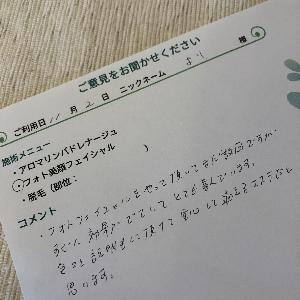 ご意見をお聞かせください
ご利用日 11 月 2 日 ニックネーム より 様
施術メニュー
・アロマリンパドレナージュ
・フォト美顔フェイシャル
・脱毛(部位: )
コメント
・フォトフェイシャルをやって頂いてまだ数回ですが
すぐに効果がでていてとても喜んでいます。
色々と説明をして頂けて安心して通えるエステだと
思います。